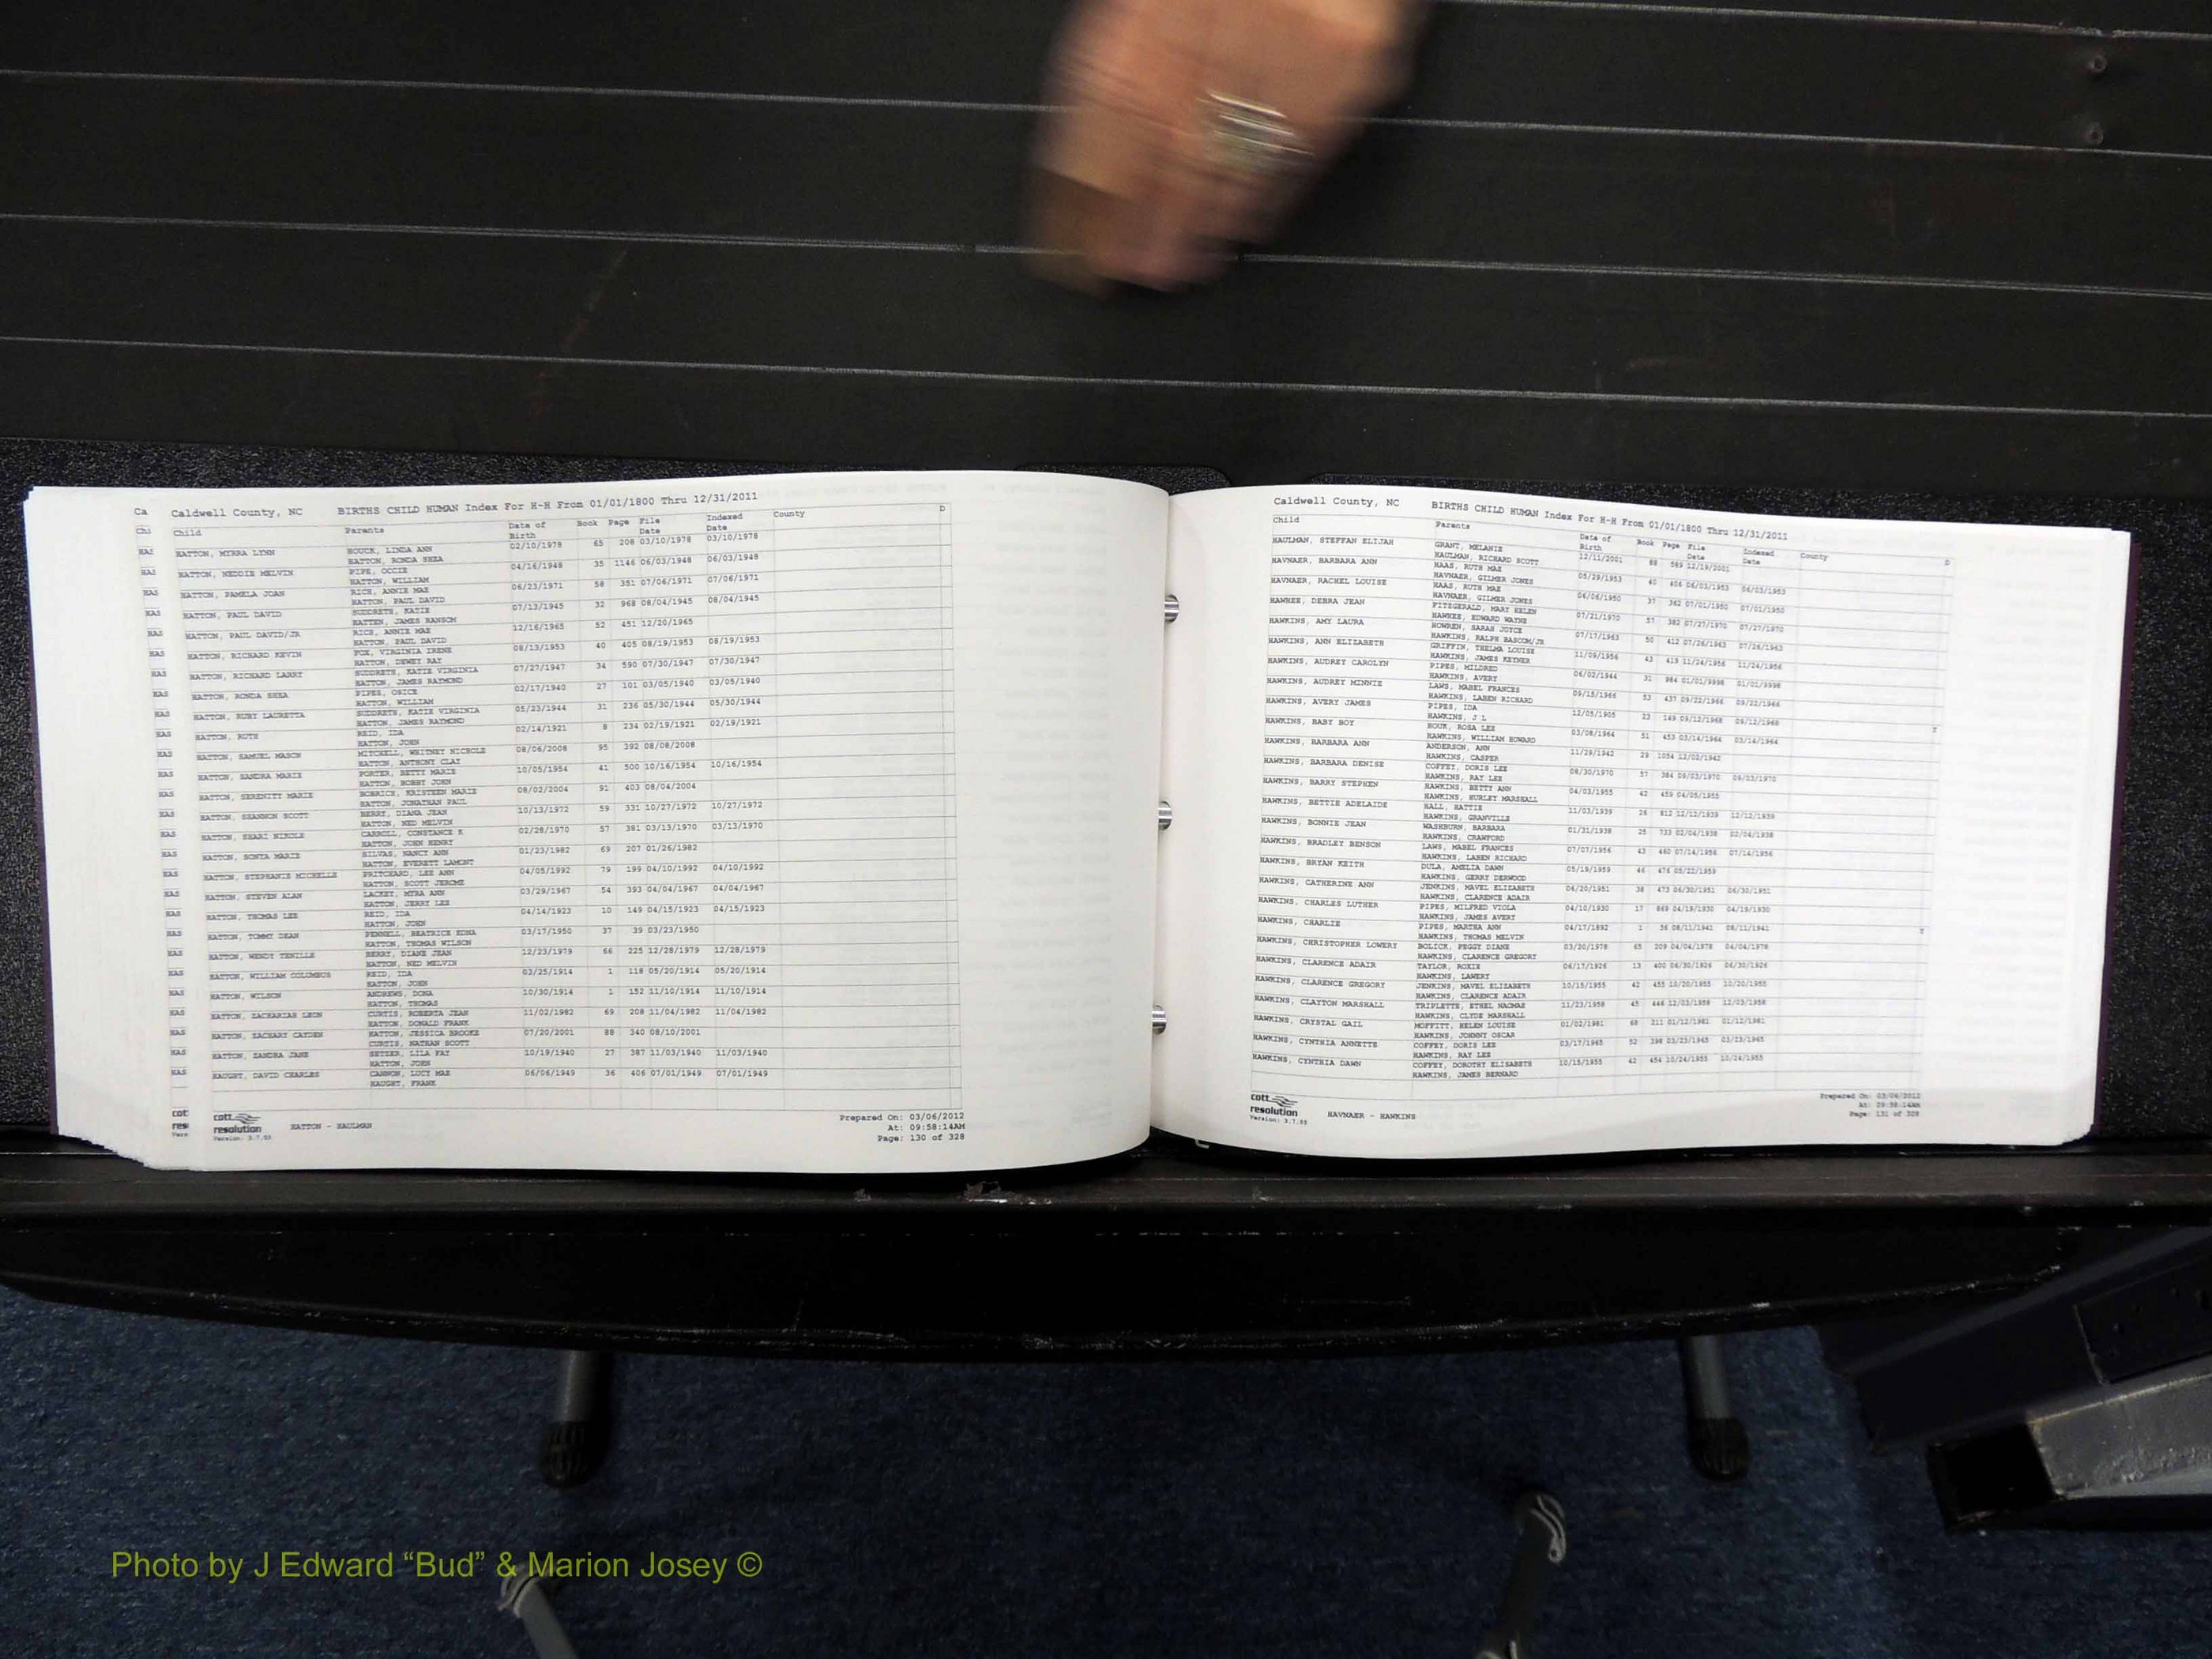 Ca
Caldwell County, NC BIRTHS CHILD HUMAN Index For H-H From 01/01/1800 Thru 12/31/2011
Chi Child Parents Date of Birth Book Page File Date Indexed Date County D
HAS HATTON, MYRRA LYNN HOUCK, LINDA ANN 02/10/1978 65 208 03/10/1978 03/10/1978
HATTON, RONDA SHEA
HAS HATTON, NEDDIE MELVIN PIPE, OCCIE 04/16/1948 35 1146 06/03/1948 06/03/1948
HATTON, WILLIAM
HAS HATTON, PAMELA JOAN RICH, ANNIE MAE 06/23/1971 58 351 07/06/1971 07/06/1971
HATTON, PAUL DAVID
HAS HATTON, PAUL DAVID SUDDRETH, KATIE 07/13/1945 32 968 08/04/1945 08/04/1945
HATTEN, JAMES RANSOM
HAS HATTON, PAUL DAVID/JR RICH, ANNIE MAE 12/16/1965 52 451 12/20/1965
HATTON, PAUL DAVID
HAS HATTON, RICHARD KEVIN FOX, VIRGINIA IRENE 08/13/1953 40 405 08/19/1953 08/19/1953
HATTON, DEWEY RAY
HAS HATTON, RICHARD LARRY SUDDRETH, KATIE VIRGINIA 07/27/1947 34 590 07/30/1947 07/30/1947
HATTON, JAMES RAYMOND
HAS HATTON, RONDA SHEA PIPES, OSICE 02/17/1940 27 101 03/05/1940 03/05/1940
HATTON, WILLIAM
HAS HATTON, RUBY LAURETTA SUDDRETH, KATIE VIRGINIA 05/23/1944 31 236 05/30/1944 05/30/1944
HATTON, JAMES RAYMOND
HAS HATTON, RUTH REID, IDA 02/14/1921 8 234 02/19/1921 02/19/1921
HATTON, JOHN
HAS HATTON, SAMUEL MASON MITCHELL, WHITNEY NICHOLE 08/06/2008 95 392 08/08/2008
HATTON, ANTHONY CLAY
HAS HATTON, SANDRA MARIE PORTER, BETTY MARIE 10/05/1954 41 500 10/16/1954 10/16/1954
HATTON, BOBBY JOHN
HAS HATTON, SERENITY MARIE BOBRICH, KRISTEEN MARIE 08/02/2004 91 403 08/04/2004
HATTON, JONATHAN PAUL
HAS HATTON, SHANNON SCOTT BERRY, DIANA JEAN 10/13/1972 59 331 10/27/1972 10/27/1972
HATTON, NED MELVIN
HAS HATTON, SHARI NIKOLE CARROLL, CONSTANCE K 02/28/1970 57 381 03/13/1970 03/13/1970
HATTON, JOHN HENRY
HAS HATTON, SONYA MARIE SILVAS, NANCY ANN 01/23/1982 69 207 01/26/1982
HATTON, EVERETT LAMONT
HAS HATTON, STEPHANIE MICHELLE PRITCHARD, LEE ANN 04/05/1992 79 199 04/10/1992 04/10/1992
HATTON, SCOTT JEROME
HAS HATTON, STEVEN ALAN LACKEY, MYRA ANN 03/29/1967 54 393 04/04/1967 04/04/1967
HATTON, JERRY LEE
HAS HATTON, THOMAS LEE REID, IDA 04/14/1923 10 149 04/15/1923 04/15/1923
HATTON, JOHN
HAS HATTON, TOMMY DEAN PENNELL, BEATRICE EDNA 03/17/1950 37 39 03/23/1950
HATTON, THOMAS WILSON
HAS HATTON, WENDY TENILLE BERRY, DIANE JEAN 12/23/1979 66 225 12/28/1979 12/28/1979
HATTON, NED MELVIN
HAS HATTON, WILLIAM COLUMBUS REID, IDA 03/25/1914 1 118 05/20/1914 05/20/1914
HATTON, JOHN
HAS HATTON, WILSON ANDREWS, DONA 10/30/1914 1 152 11/10/1914 11/10/1914
HATTON, THOMAS
HAS HATTON, ZACHARIAH LEON CURTIS, ROBERTA JEAN 11/02/1982 69 208 11/04/1982 11/04/1982
HATTON, DONALD FRANK
HAS HATTON, ZACHARY CAYDEN HATTON, JESSICA BROOKE 07/20/2001 88 340 08/10/2001
CURTIS, NATHAN SCOTT
HAS HATTON, ZANDRA JANE SETZER, LILA FAY 10/19/1940 27 387 11/03/1940 11/03/1940
HATTON, JOHN
HAS HAUGHT, DAVID CHARLES CANNON, LUCY MAE 06/06/1949 36 406 07/01/1949 07/01/1949
HAUGHT, FRANK
cott resolution Version: 3.7.53 HATTON - HAULMAN
Prepared On: 03/06/2012
At: 09:58:14AM
Page: 130 of 328
Caldwell County, NC BIRTHS CHILD HUMAN Index For H-H From 01/01/1800 Thru 12/31/2011
Child Parents Date of Birth Book Page File Date Indexed Date County D
HAULMAN, STEFFAN ELIJAH GRANT, MELANIE 12/11/2001 88 589 12/19/2001
HAULMAN, RICHARD SCOTT
HAVNAER, BARBARA ANN HAAS, RUTH MAE 05/29/1953 40 406 06/03/1953 06/03/1953
HAVNAER, GILMER JONES
HAVNAER, RACHEL LOUISE HAAS, RUTH MAE 06/06/1950 37 362 07/01/1950 07/01/1950
HAVNAER, GILMER JONES
HAWHEE, DEBRA JEAN FITZGERALD, MARY HELEN 07/21/1970 57 382 07/27/1970 07/27/1970
HAWHEE, EDWARD WAYNE
HAWKINS, AMY LAURA HOWREN, SARAH JOYCE 07/17/1963 50 412 07/26/1963 07/26/1963
HAWKINS, RALPH BASCOM/JR
HAWKINS, ANN ELIZABETH GRIFFIN, THELMA LOUISE 11/09/1956 43 419 11/24/1956 11/24/1956
HAWKINS, JAMES KEYNER
HAWKINS, AUDREY CAROLYN PIPES, MILDRED 06/02/1944 31 984 01/01/9998 01/01/9998
HAWKINS, AVERY
HAWKINS, AUDREY MINNIE LAWS, MABEL FRANCES 09/15/1966 53 437 09/22/1966 09/22/1966
HAWKINS, LABEN RICHARD
HAWKINS, AVERY JAMES PIPES, IDA 12/05/1905 23 149 09/12/1968 09/12/1968
HAWKINS, J L
HAWKINS, BABY BOY HOUK, ROSA LEE 03/08/1964 51 453 03/14/1964 03/14/1964
HAWKINS, WILLIAM HOWARD
HAWKINS, BARBARA ANN ANDERSON, ANN 11/29/1942 29 1054 12/02/1942
HAWKINS, CASPER
HAWKINS, BARBARA DENISE COFFEY, DORIS LEE 08/30/1970 57 384 09/03/1970 09/03/1970
HAWKINS, RAY LEE
HAWKINS, BARRY STEPHEN HAWKINS, BETTY ANN 04/03/1955 42 459 04/05/1955
HAWKINS, HURLEY MARSHALL
HAWKINS, BETTIE ADELAIDE HALL, HATTIE 11/03/1939 26 812 12/12/1939 12/12/1939
HAWKINS, GRANVILLE
HAWKINS, BONNIE JEAN WASHBURN, BARBARA 01/31/1938 25 733 02/04/1938 02/04/1938
HAWKINS, CRAWFORD
HAWKINS, BRADLEY BENSON LAWS, MABEL FRANCES 07/07/1956 43 460 07/14/1956 07/14/1956
HAWKINS, LABEN RICHARD
HAWKINS, BRYAN KEITH DULA, AMELIA DAWN 05/19/1959 46 476 05/22/1959
HAWKINS, GERRY DERWOOD
HAWKINS, CATHERINE ANN JENKINS, MAVEL ELIZABETH 06/20/1951 38 473 06/30/1951 06/30/1951
HAWKINS, CLARENCE ADAIR
HAWKINS, CHARLES LUTHER PIPES, MILFRED VIOLA 04/10/1930 17 869 04/19/1930 04/19/1930
HAWKINS, JAMES AVERY
HAWKINS, CHARLIE PIPES, MARTHA ANN 04/17/1892 1 56 08/11/1941 08/11/1941
HAWKINS, THOMAS MELVIN
HAWKINS, CHRISTOPHER LOWERY BOLICK, PEGGY DIANE 03/20/1978 65 209 04/04/1978 04/04/1978
HAWKINS, CLARENCE GREGORY
HAWKINS, CLARENCE ADAIR TAYLOR, ROXIE 06/17/1926 13 400 06/30/1926 06/30/1926
HAWKINS, LAWERY
HAWKINS, CLARENCE GREGORY JENKINS, MAVEL ELIZABETH 10/15/1955 42 455 10/20/1955 10/20/1955
HAWKINS, CLARENCE ADAIR
HAWKINS, CLAYTON MARSHALL TRIPLETTE, ETHEL NAOMAE 11/23/1958 45 446 12/03/1958 12/03/1958
HAWKINS, CLYDE MARSHALL
HAWKINS, CRYSTAL GAIL MOFFITT, HELEN LOUISE 01/02/1981 68 211 01/12/1981 01/12/1981
HAWKINS, JOHNNY OSCAR
HAWKINS, CYNTHIA ANNETTE COFFEY, DORIS LEE 03/17/1965 52 398 03/23/1965 03/23/1965
HAWKINS, RAY LEE
HAWKINS, CYNTHIA DAWN COFFEY, DOROTHY ELISABETH 10/15/1955 42 454 10/24/1955 10/24/1955
HAWKINS, JAMES BERNARD
cott resolution Version: 3.7.53 HAVNAER - HAWKINS
Prepared On: 03/06/2012
At: 09:58:14AM
Page: 131 of 328
Photo by J Edward “Bud” & Marion Josey ©